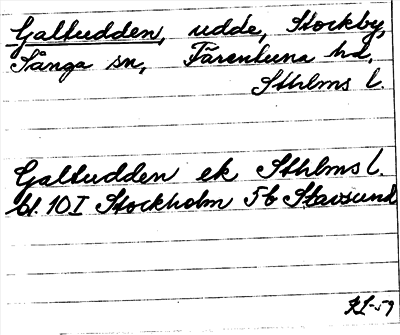 Galtudden, udde, Stockby,
Sånga sn, Färentuna hd,
Sthlms l.
Galtudden ek Sthlms l.
bl. 10 I Stockholm 5b Stavsund
KL-59